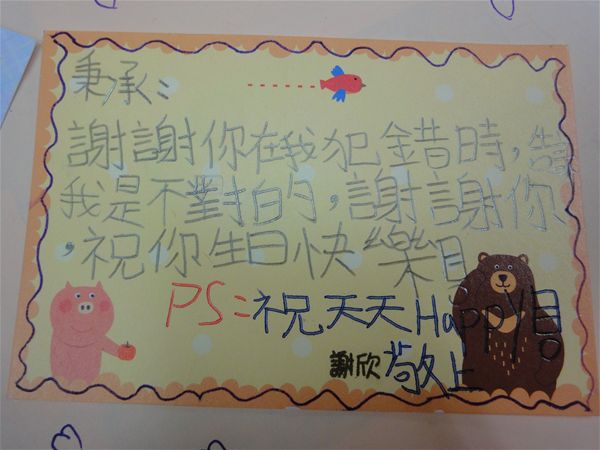 秉承:
謝謝你在我犯錯時,告訴
我是不對的,謝謝你
,祝你生日快樂
PS:祝天天Happy
謝欣 敬上